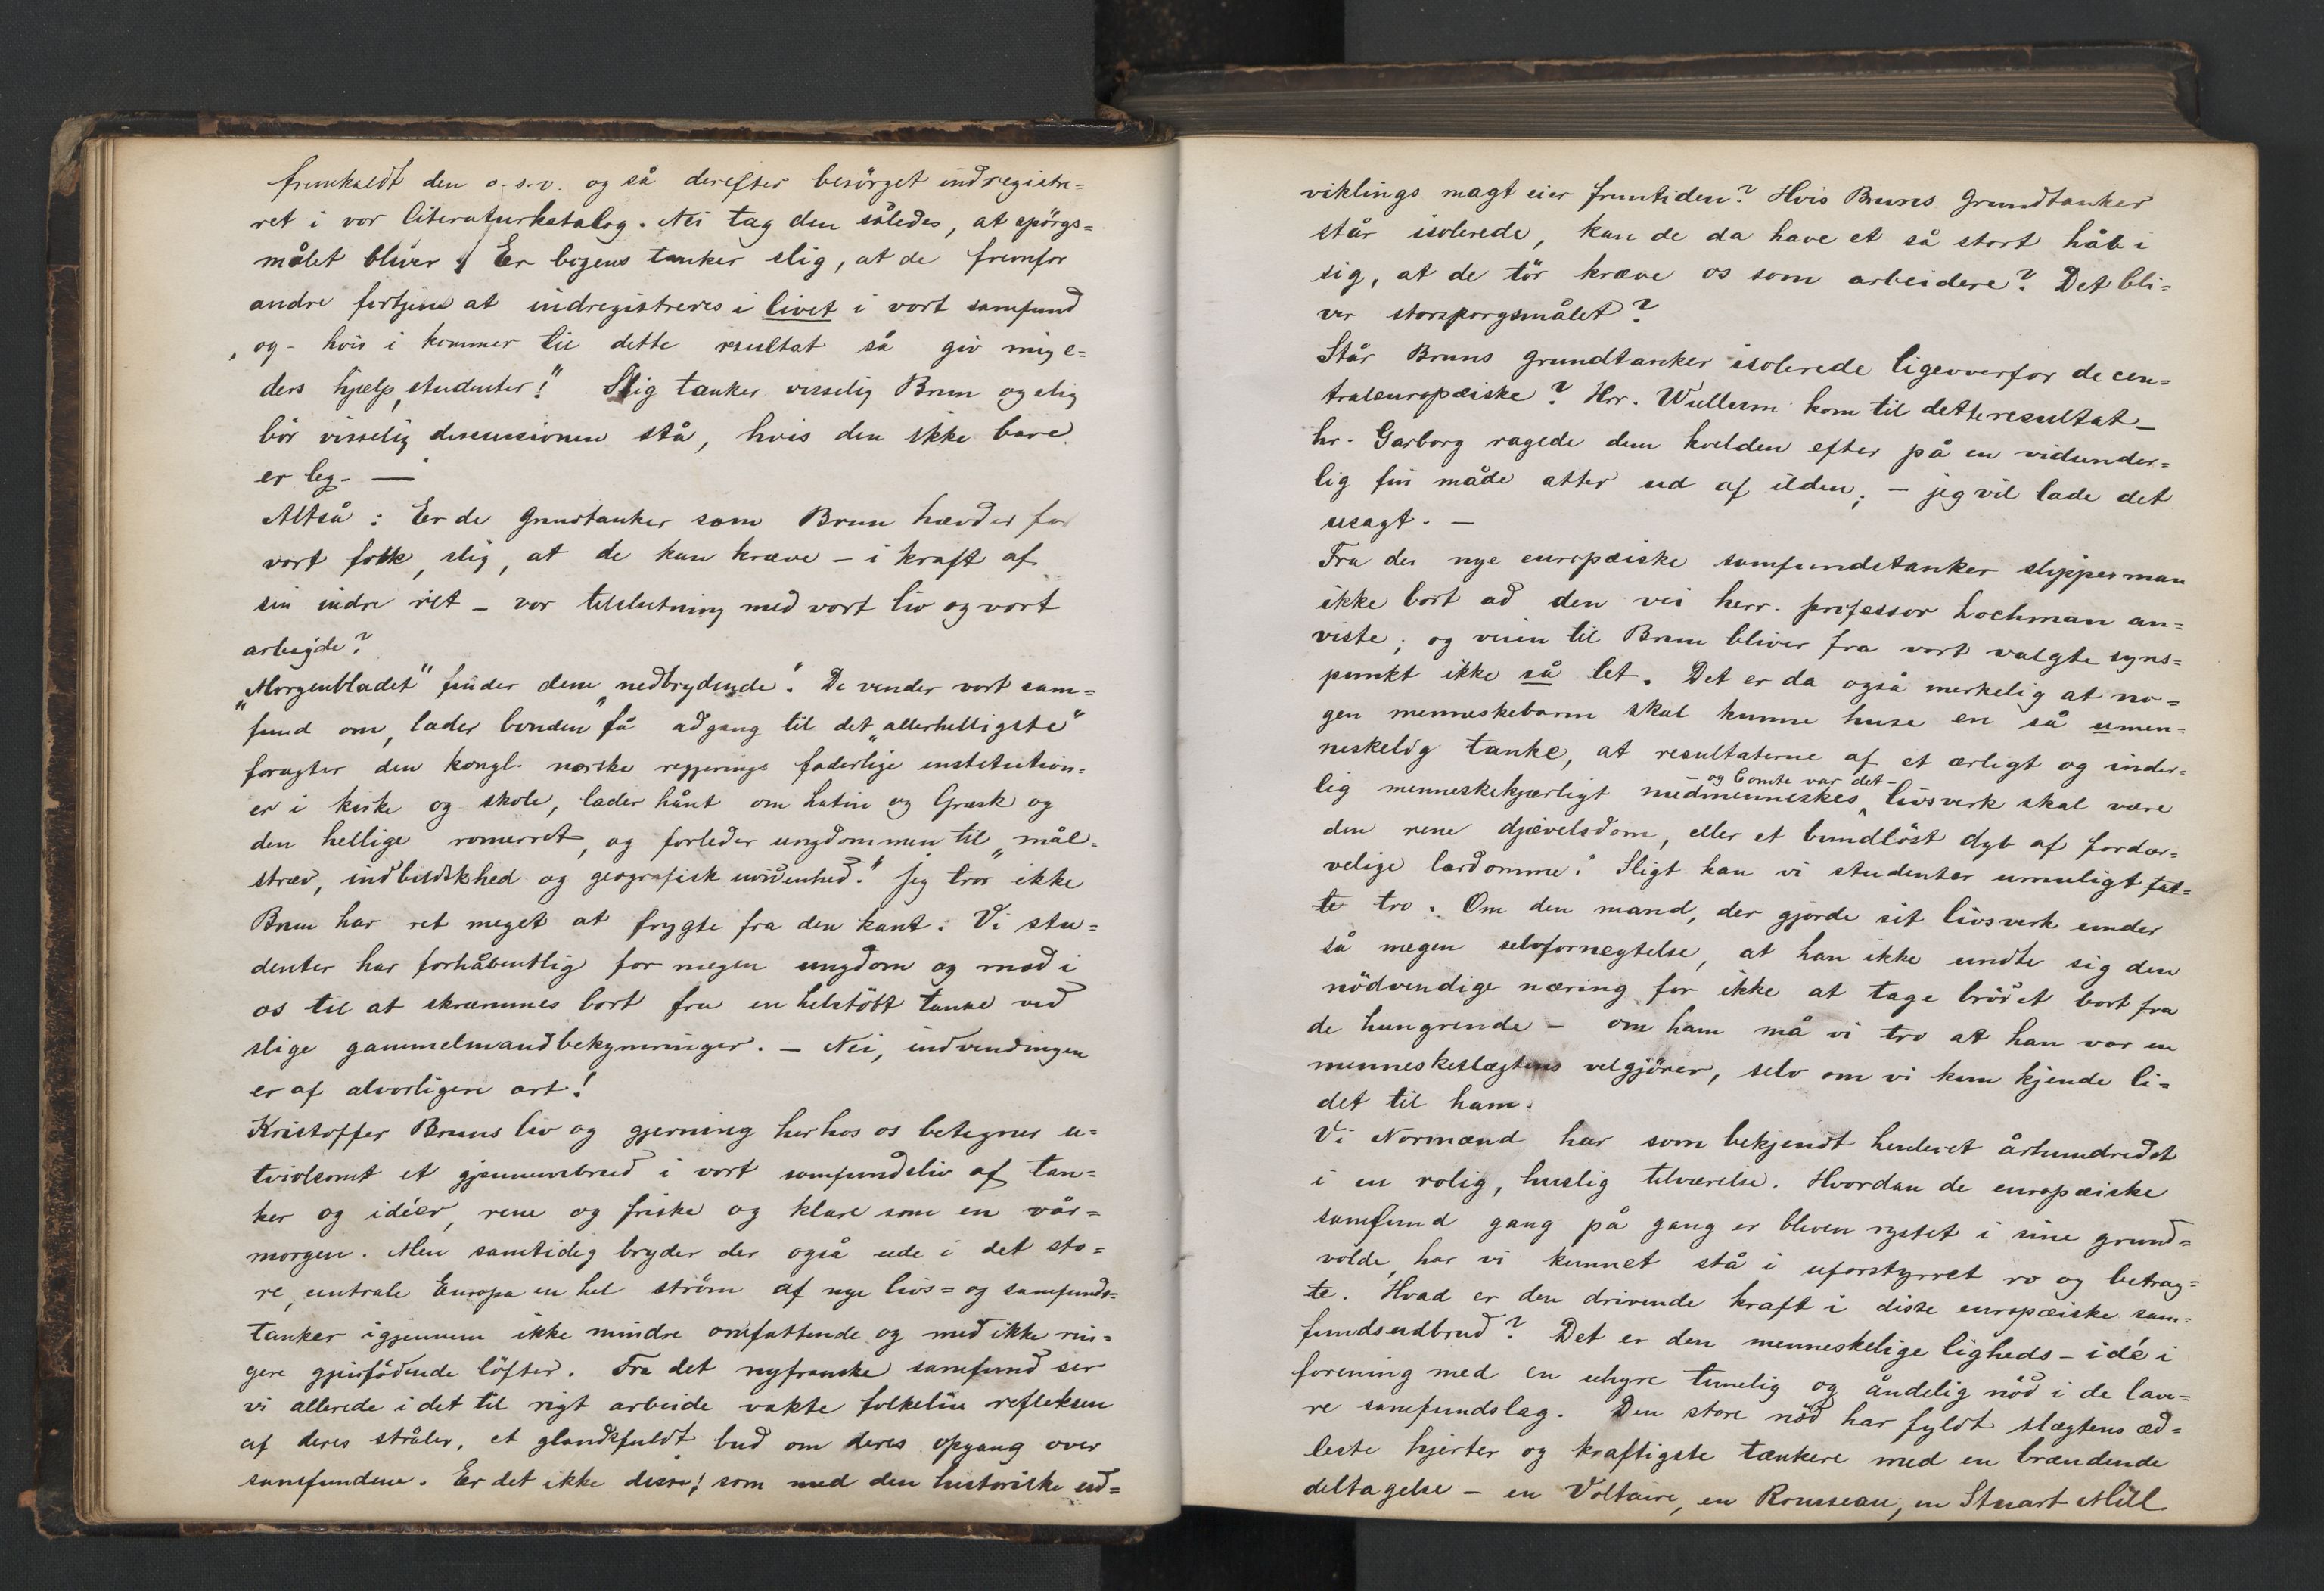 fremkaldt den o.s.v. og så derefter besörget indregistre=
ret i vor literaturkatalog. Nei tag den således, at spörgs=
målet bliver: Er bogens tanker slig, at de fremfor
andre fortjene at indregistreres i livet i vort samfund
, og - hvis i kommer til dette resultat så giv mig e=
ders hjælp, studenter!" Slig tænker visselig Brun og slig
bör visselig discussionen stå, hvis den ikke bare
er leg. —
Altså: Er de grundtanker som Brun hævder for
vort folk, slig, at de kan kræve - i kraft af
sin indre ret - vor tilslutning med vort liv og vort
arbeide?
"Morgenbladet" finder dem "nedbrydende". De vender vort sam=
fund om, lader bonden få adgang til det "allerhelligste"
foragter den kongl. norske regjerings faderlige institution=
er i kirke og skole, lader hånt om Latin og Græsk og
den hellige romerret, og forleder ungdommen til "mål=
stræv, indbildskhed og geografisk uvidenhed." Jeg tror ikke
Brun har ret meget at frygte fra den kant: Vi stu=
denter har forhåbentlig for megen ungdom og mod i
os til at skræmmes bort fra en helstöbt tanke ved
slige gammelmandbekymringer. - Nei, indvendingen
er af alvorligere art!
Kristoffer Bruns liv og gjerning her hos os betegner u=
tvivlsomt et gjennembrud i vort samfundsliv af tan=
ker og idéer, rene og friske og klare som en vår=
morgen. Men samtidig bryder der også ude i det sto=
re, centrale Europa en hel ström af nye livs= og samfunds=
tanker igjennem ikke mindre omfattende og med ikke rin=
gere gjenfödende löfter. Fra det nyfranske samfund ser
vi allerede i det til rigt arbeide vakte folkeliv refleksen
af deres stråler, et glandsfuldt bud om deres opgang over
samfundene. Er det ikke disse, som med den historiske ud=
viklings magt eier fremtiden? Hvis Bruns grundtanker
står isolerede, kan de da have et så stort håb i
sig, at de tör kræve os som arbeidere? Det bli=
ver storspörgsmålet?
Står Bruns grundtanker isolerede ligeoverfor de cen=
traleuropæiske? Hrr. Wullum kom til dette resultat -
hr. Garborg ragede dem kvelden efter på en vidunder=
lig fin måde atter ud af ilden; - jeg vil lade det
usagt. -
Fra de nye europæiske samfundstanker slipper man
ikke bort ad den vei herr. professor Lochman an=
viste; og veien til Brun bliver fra vort valgte syns=
punkt ikke så let. Det er da også merkelig at no=
gen menneskebarm skal kunne huse en så umen=
neskelig tanke, at resultaterne af et ærligt og inder=
lig menneskekjærligt medmenneskes - og Comte var det - livsverk skal være
den rene djævelsdom, eller et bundlöst dyb af fordær=
velige lærdomme. Sligt kan vi studenter umuligt fat=
te tro. Om den mand, der gjorde sit livsverk under
så megen selvfornegtelse, at han ikke undte sig den
nödvendige næring for ikke at tage brödet bort fra
de hungrende - om ham må vi tro at han var en
menneskeslægtens velgjörer, selv om vi kun kjende li=
det til ham.
Vi Normænd har som bekjendt henlevet århundredet
i en rolig, huslig tilværelse. Hvordan de europæiske
samfund gang på gang er bleven rystet i sine grund=
volde, har vi kunnet stå i uforstyrret ro og betrag=
te. Hvad er den drivende kraft i disse europæiske sam=
fundsudbrud? Det er den menneskelige ligheds-idé i
forening med en uhyre timelig og åndelig nöd i de lave=
re samfundslag. Den store nöd har fyldt slægtens æd=
leste hjerter og kraftigste tænkere med en brændende
deltagelse - en Voltaire, en Rousseau, en Stuart Mill